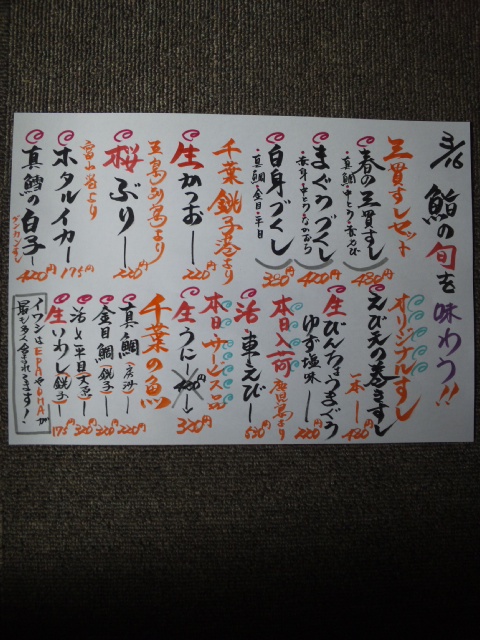 3/16 鮨の旬を味わう!!
三貫すしセット
春の三貫すし 480円
・真鯛・中とろ・
まぐろづくし 400円
・赤身・中とろ・
白身づくし 350円
・真鯛・金目・平目
千葉銚子港より
生かつおー 220円
五島列島より
桜ぶりー 220円
富山湾より
ホタルイカー 175円
真鱈の白子ー 420円
オリジナルすし
えびえの巻きすし
一本ー 480円
生びんちょうまぐろ
ゆず塩味ー 220円
本日入荷
鹿児島より
活・車えびー 630円
本日サービス品
生うにー 320円
千葉の魚
真鯛ー 220円
金目鯛(銚子)ー 220円
活〆平目 320円
生いわし(銚子)ー 175円
イワシはEPAやDHAが
最も多く含まれてます!